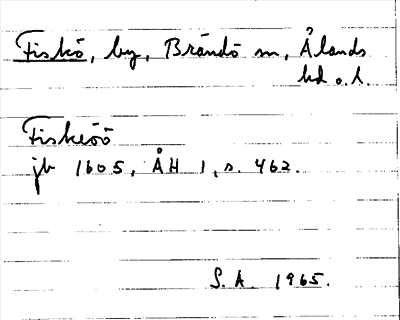 Fiskö, by, Brändö sn, Ålands
hd o. l.
Fiskeöö
jb 1605, ÅH 1, s. 462.
S. A. 1965.